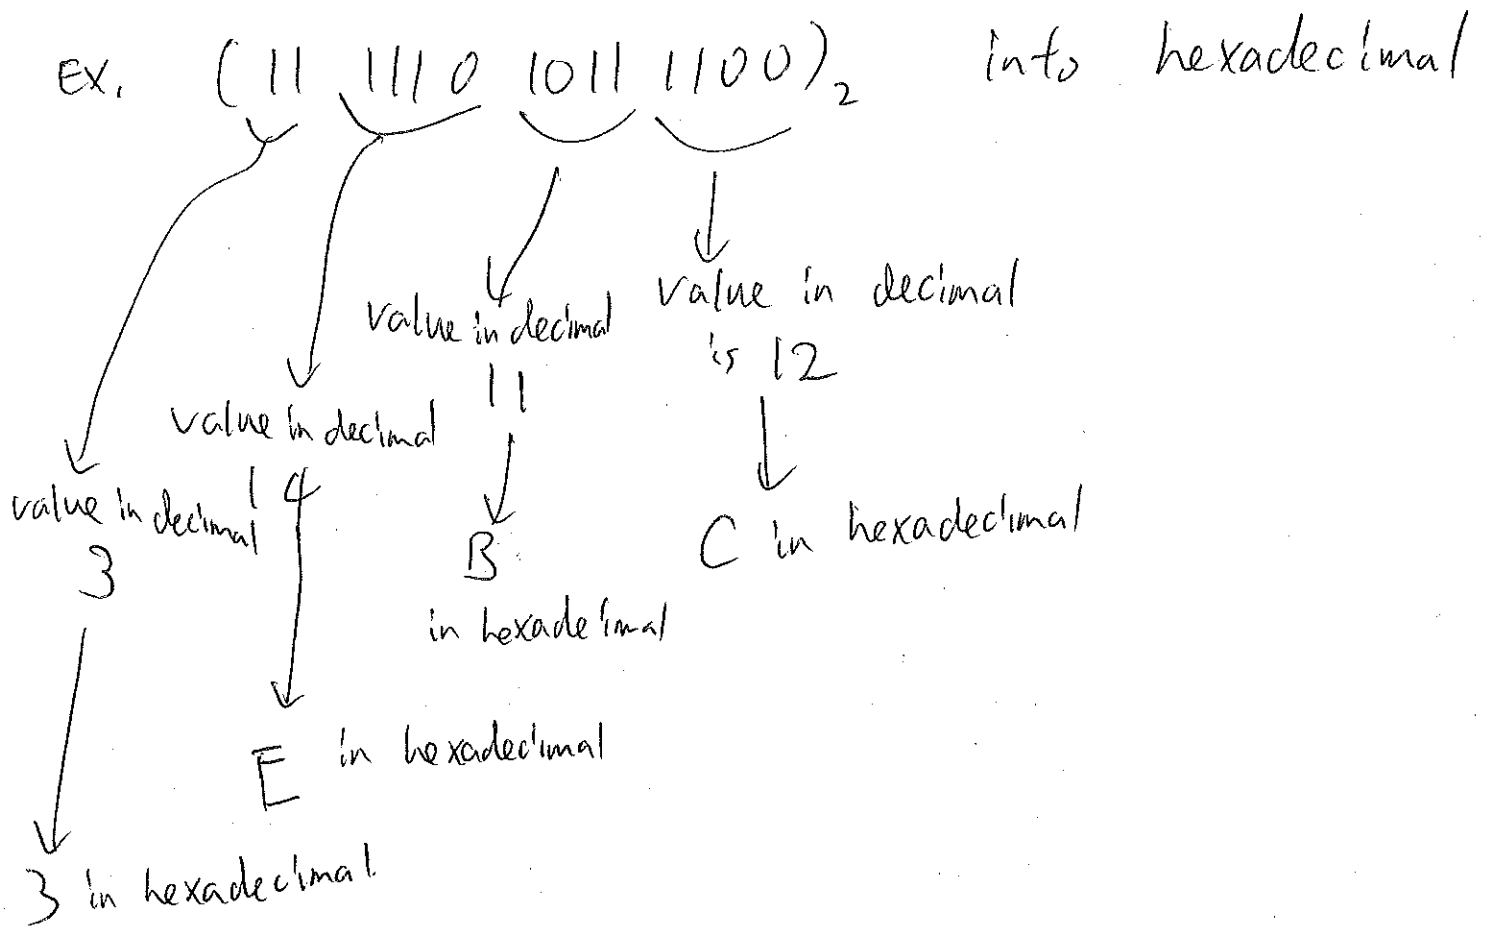 Ex. (11 1110 1011 1100)2 into hexadecimal
value in decimal
is 12
C in hexadecimal
value in decimal
11
B
in hexadecimal
value in decimal
14
E in hexadecimal
value in decimal
3
3 in hexadecimal.